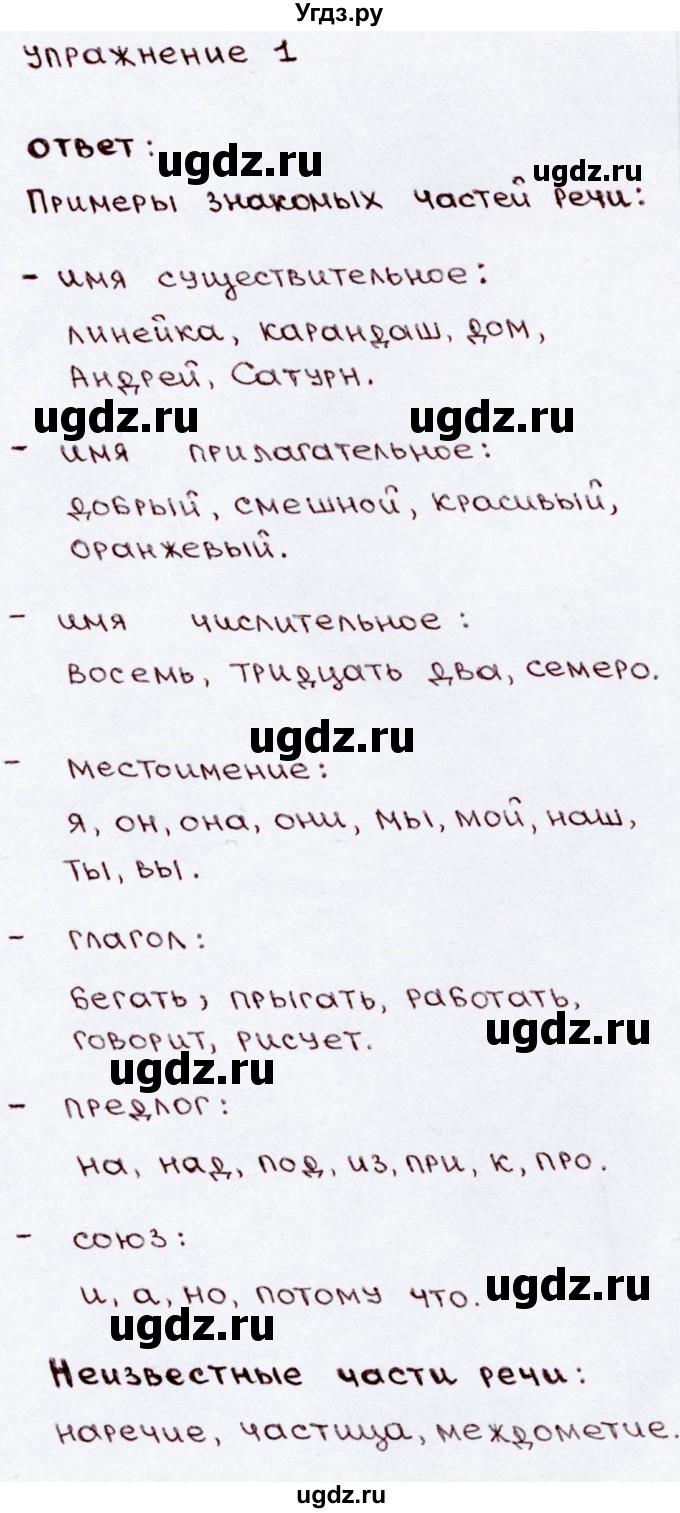 Угдз.ру
упражнение 1
ответ:
ugdz.ru
ugdz.ru
Примеры знакомых частей речи:
- имя существительное:
линейка, карандаш, дом,
Андрей, Сатурн.
ugdz.ru ugdz.ru
- имя прилагательное:
добрый, смешной, красивый,
оранжевый.
- имя числительное:
восемь, тридцать два, семеро.
ugdz.ru
- местоимение:
я, он, она, они, мы, мой, наш,
ты, вы.
- глагол:
бегать, прыгать, работать,
ugdz.ru
говорит, рисует.
ugdz.ru
- предлог:
на, над, под, из, при, к, про.
- союз:
и, а, но, потому что.
ugdz.ru
ugdz.ru
Неизвестные части речи:
наречие, частица, междометие.
ugdz.ru